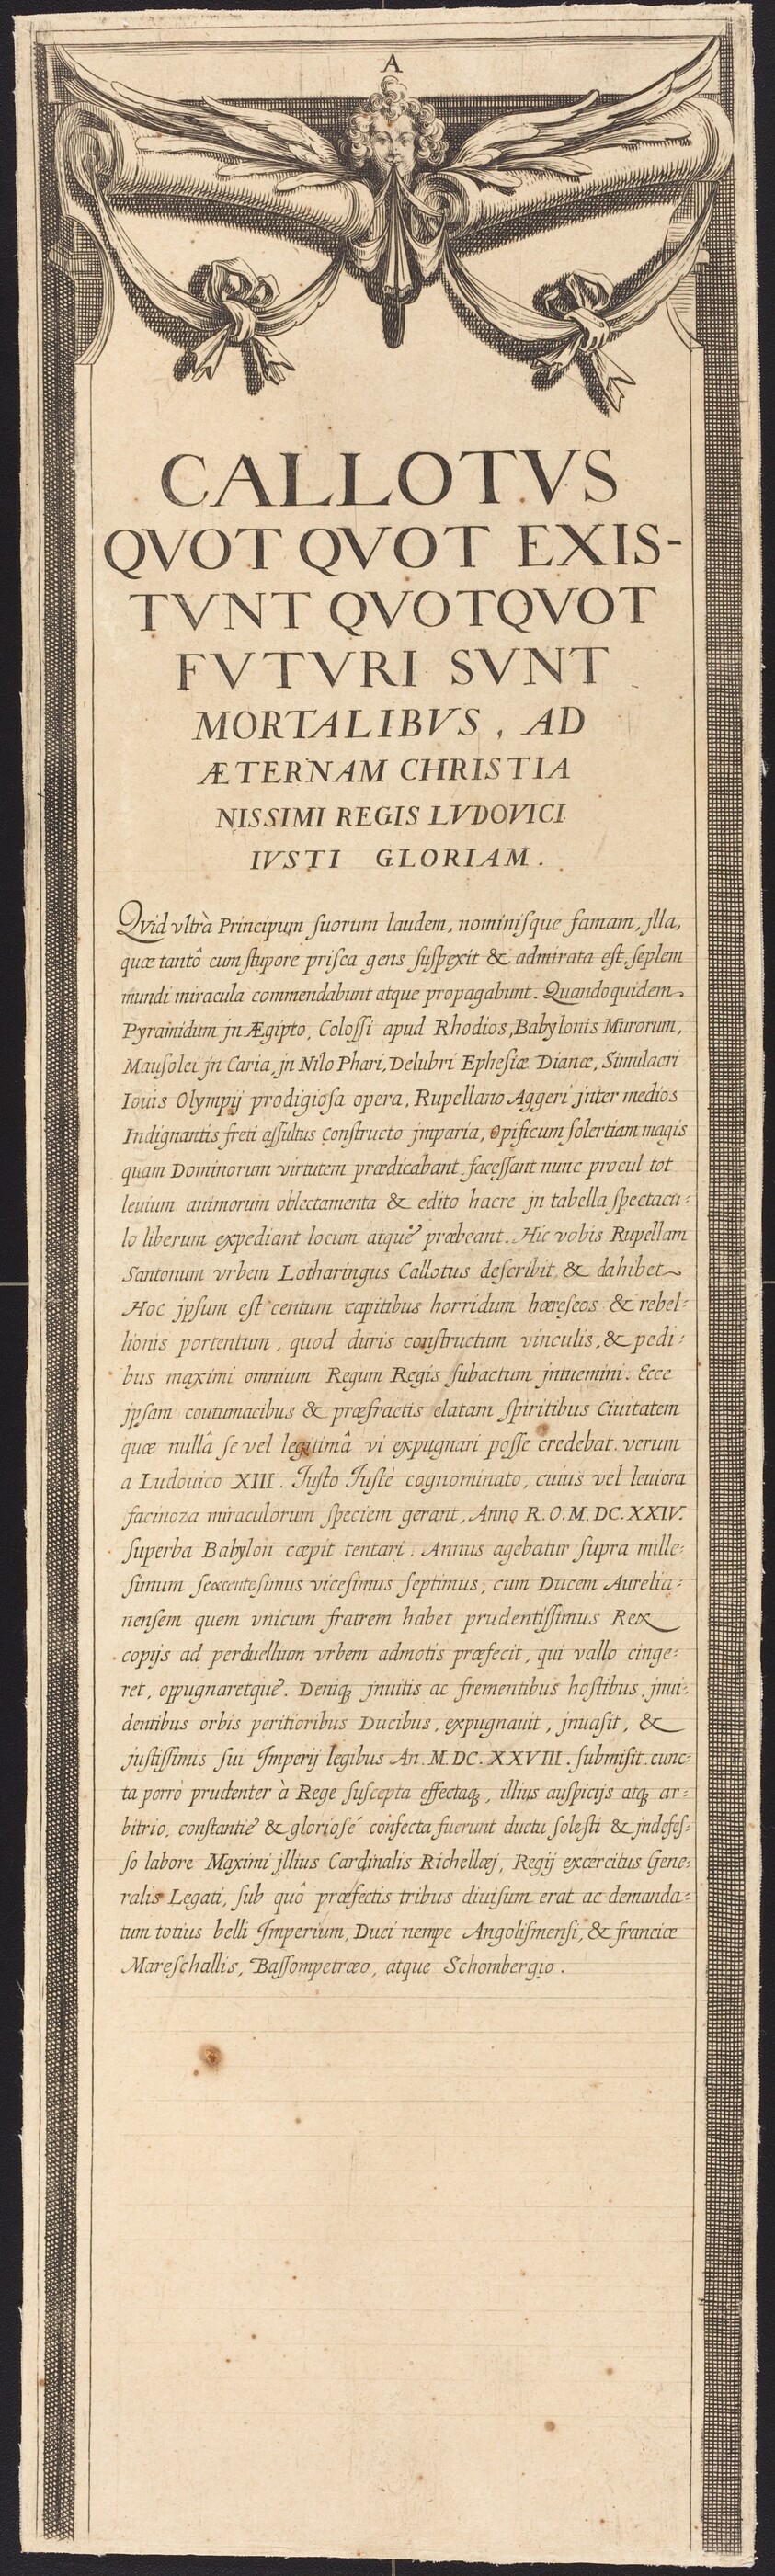 A
CALLOTVS
QVOT QVOT EXIS-
TVNT QVOTQVOT
FVTVRI SVNT
MORTALIBVS, AD
ÆTERNAM CHRISTIA
NISSIMI REGIS LVDOVICI
IVSTI GLORIAM.
Qvid vltrà Principum suorum laudem, nominisque famam, jlla,
quæ tantô cum stupore prisca gens suspexit & admirata est, septem
mundi miracula commendabunt atque propagabunt. Quandoquidem
Pyramidum jn Ægipto, Colossi apud Rhodios, Babylonis Murorum,
Mausolei jn Caria, jn Nilo Phari, Delubri Ephesiæ Dianæ, Simulacri
Iouis Olympij prodigiosa opera, Rupellano Aggeri jnter medios
Indignantis freti assultus constructo jmparia, opificum solertiam magis
quam Dominorum virtutem prædicabant. facessant nunc procul tot
leuium animorum oblectamenta & edito hacre jn tabella spectacu=
lo liberum expediant locum atque præbeant. Hic vobis Rupellam
Santonum vrbem Lotharingus Callotus describit & dahibet
Hoc jpsum est centum capitibus horridum hæreseos & rebel=
lionis portentum, quod duris constructum vinculis, & pedi=
bus maximi omnium Regum Regis subactum jntuemini. Ecce
jpsam coutumacibus & præfractis elatam spiritibus Ciuitatem
quæ nullâ se vel legitimâ vi expugnari posse credebat. verum
a Ludouico XIII. Justo Justè cognominato, cuius vel leuiora
facinoza miraculorum speciem gerant, Anno R.O.M.DC.XXIV.
superba Babylon cæpit tentari. Annus agebatur supra mille=
simum sexcentesimus vicesimus septimus, cum Ducem Aurelia=
nensem quem vnicum fratrem habet prudentissimus Rex
copijs ad perduellium vrbem admotis præfecit, qui vallo cinge=
ret, oppugnaretque. Deniq; jnuitis ac frementibus hostibus, jnui=
dentibus orbis peritioribus Ducibus, expugnauit, jnuasit, &
justissimis sui Jmperij legibus An. M.DC.XXVIII. submisit. cunc=
ta porrò prudenter à Rege suscepta effectaq;, illius auspicijs atq; ar=
bitrio, constantiè & gloriosé confecta fuerunt ductu solesti & jndefes=
so labore Maximi jllius Cardinalis Richellæj, Regij excercitus Gene=
ralis Legati, sub quô præfectis tribus diuisum erat ac demanda=
tum totius belli Jmperium, Duci nempe Angolismensi, & franciæ
Mareschallis, Bassompetræo, atque Schombergio.